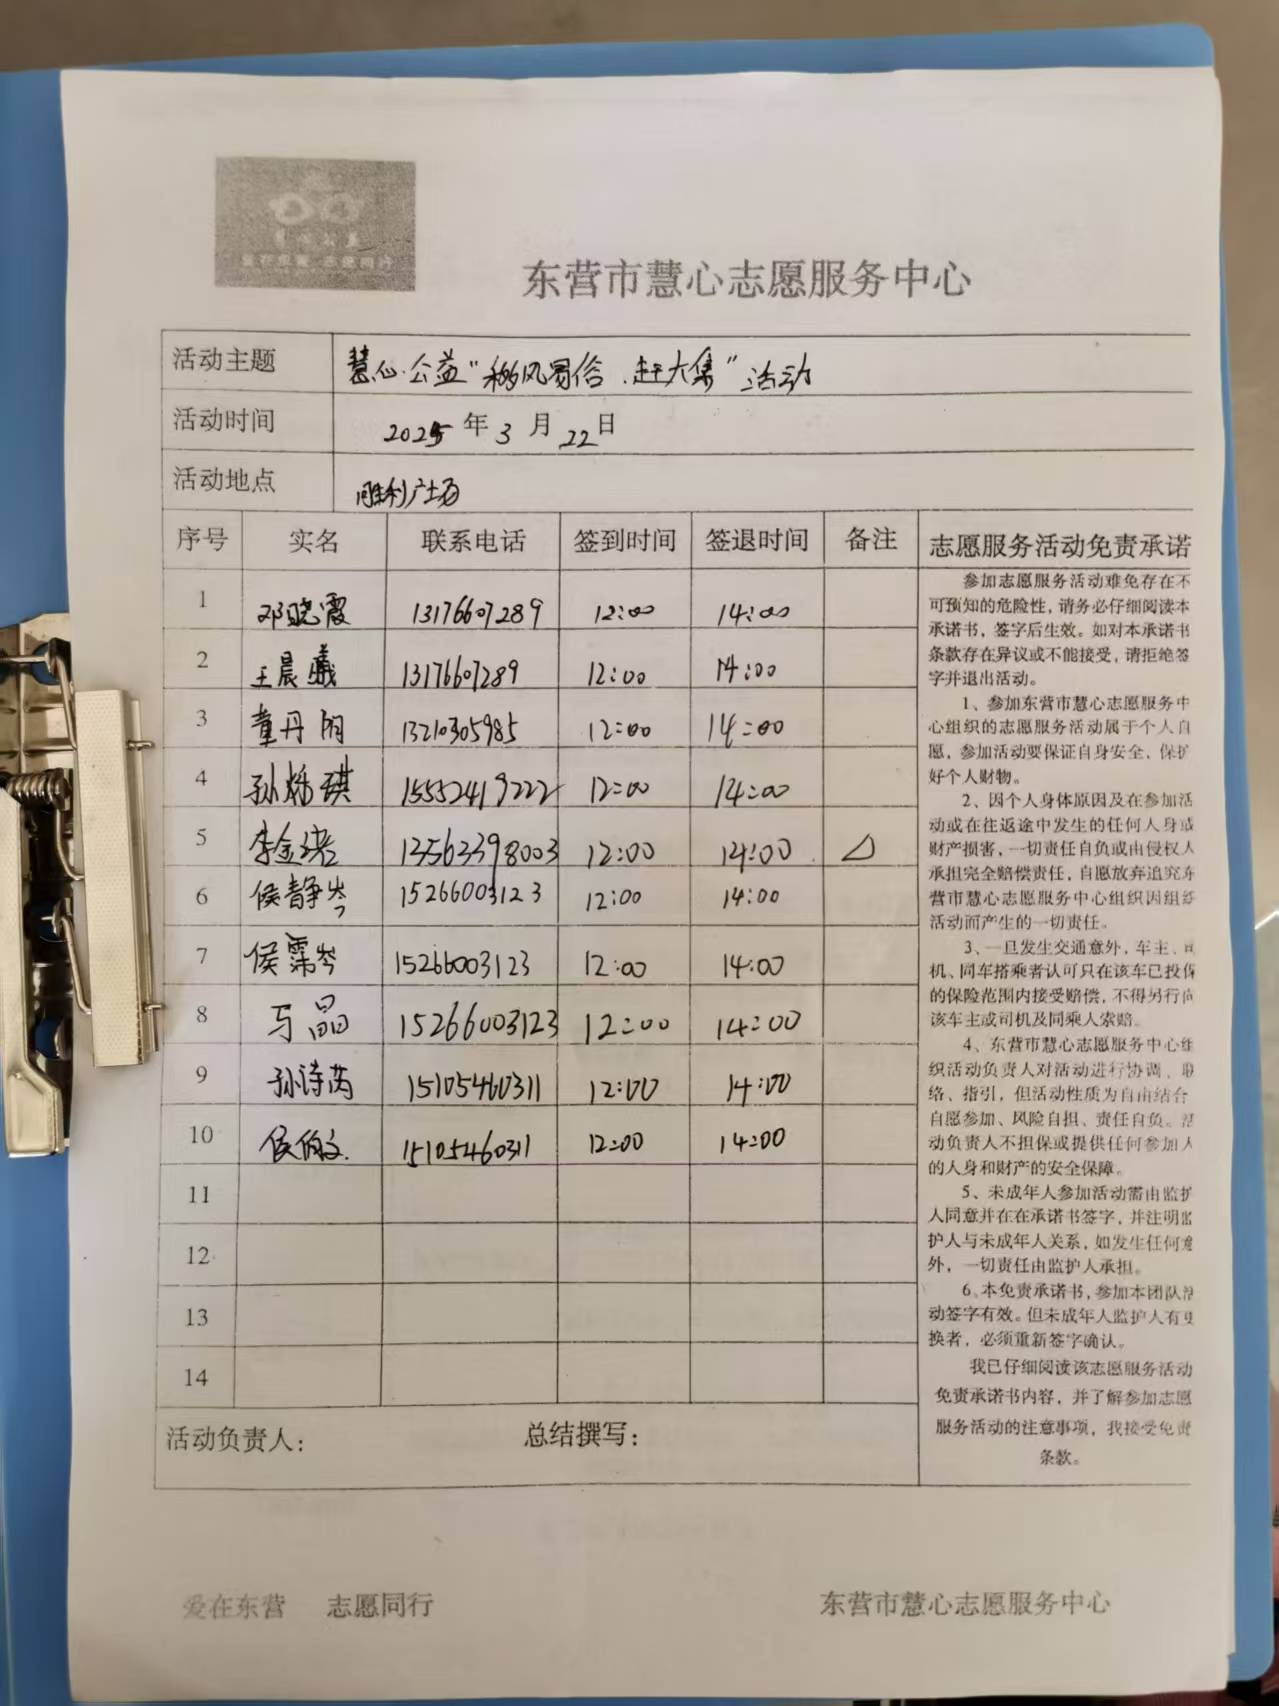 东营市慧心志愿服务中心
活动主题 慧心公益“移风易俗.赶大集”活动
活动时间 2025年3月22日
活动地点 胜利广场
序号 实名 联系电话 签到时间 签退时间 备注
1 邓晓霞 13176607289 12:00 14:00
2 王晨曦 13176607289 12:00 14:00
3 董丹阳 13210305985 12:00 14:00
4 孙 琪 15552419222 12:00 14:00
5 李金 13563398003 12:00 14:00 △
6 侯静岑 15266003123 12:00 14:00
7 侯霈岑 15266003123 12:00 14:00
8 马晶 15266003123 12:00 14:00
9 孙诗芮 15105460311 12:00 14:00
10 侯 文 15105460311 12:00 14:00
11
12
13
14
活动负责人: 总结撰写:
志愿服务活动免责承诺
参加志愿服务活动难免存在不
可预知的危险性,请务必仔细阅读本
承诺书,签字后生效。如对本承诺书
条款存在异议或不能接受,请拒绝签
字并退出活动。
1、参加东营市慧心志愿服务中
心组织的志愿服务活动属于个人自
愿,参加活动要保证自身安全,保护
好个人财物。
2、因个人身体原因及在参加活
动或在往返途中发生的任何人身或
财产损害,一切责任自负或由侵权人
承担完全赔偿责任,自愿放弃追究东
营市慧心志愿服务中心组织因组织
活动而产生的一切责任。
3、一旦发生交通意外,车主、司
机、同车搭乘者认可只在该车已投保
的保险范围内接受赔偿,不得另行向
该车主或司机及同乘人索赔。
4、东营市慧心志愿服务中心组
织活动负责人对活动进行协调、联
络、指引,但活动性质为自由结合、
自愿参加、风险自担、责任自负。活
动负责人不担保或提供任何参加人
的人身和财产的安全保障。
5、未成年人参加活动需由监护
人同意并在在承诺书签字,并注明监
护人与未成年人关系,如发生任何意
外,一切责任由监护人承担。
6、本免责承诺书,参加本团队活
动签字有效。但未成年人监护人有更
换者,必须重新签字确认。
我已仔细阅读该志愿服务活动
免责承诺书内容,并了解参加志愿
服务活动的注意事项,我接受免责
条款。
爱在东营 志愿同行 东营市慧心志愿服务中心